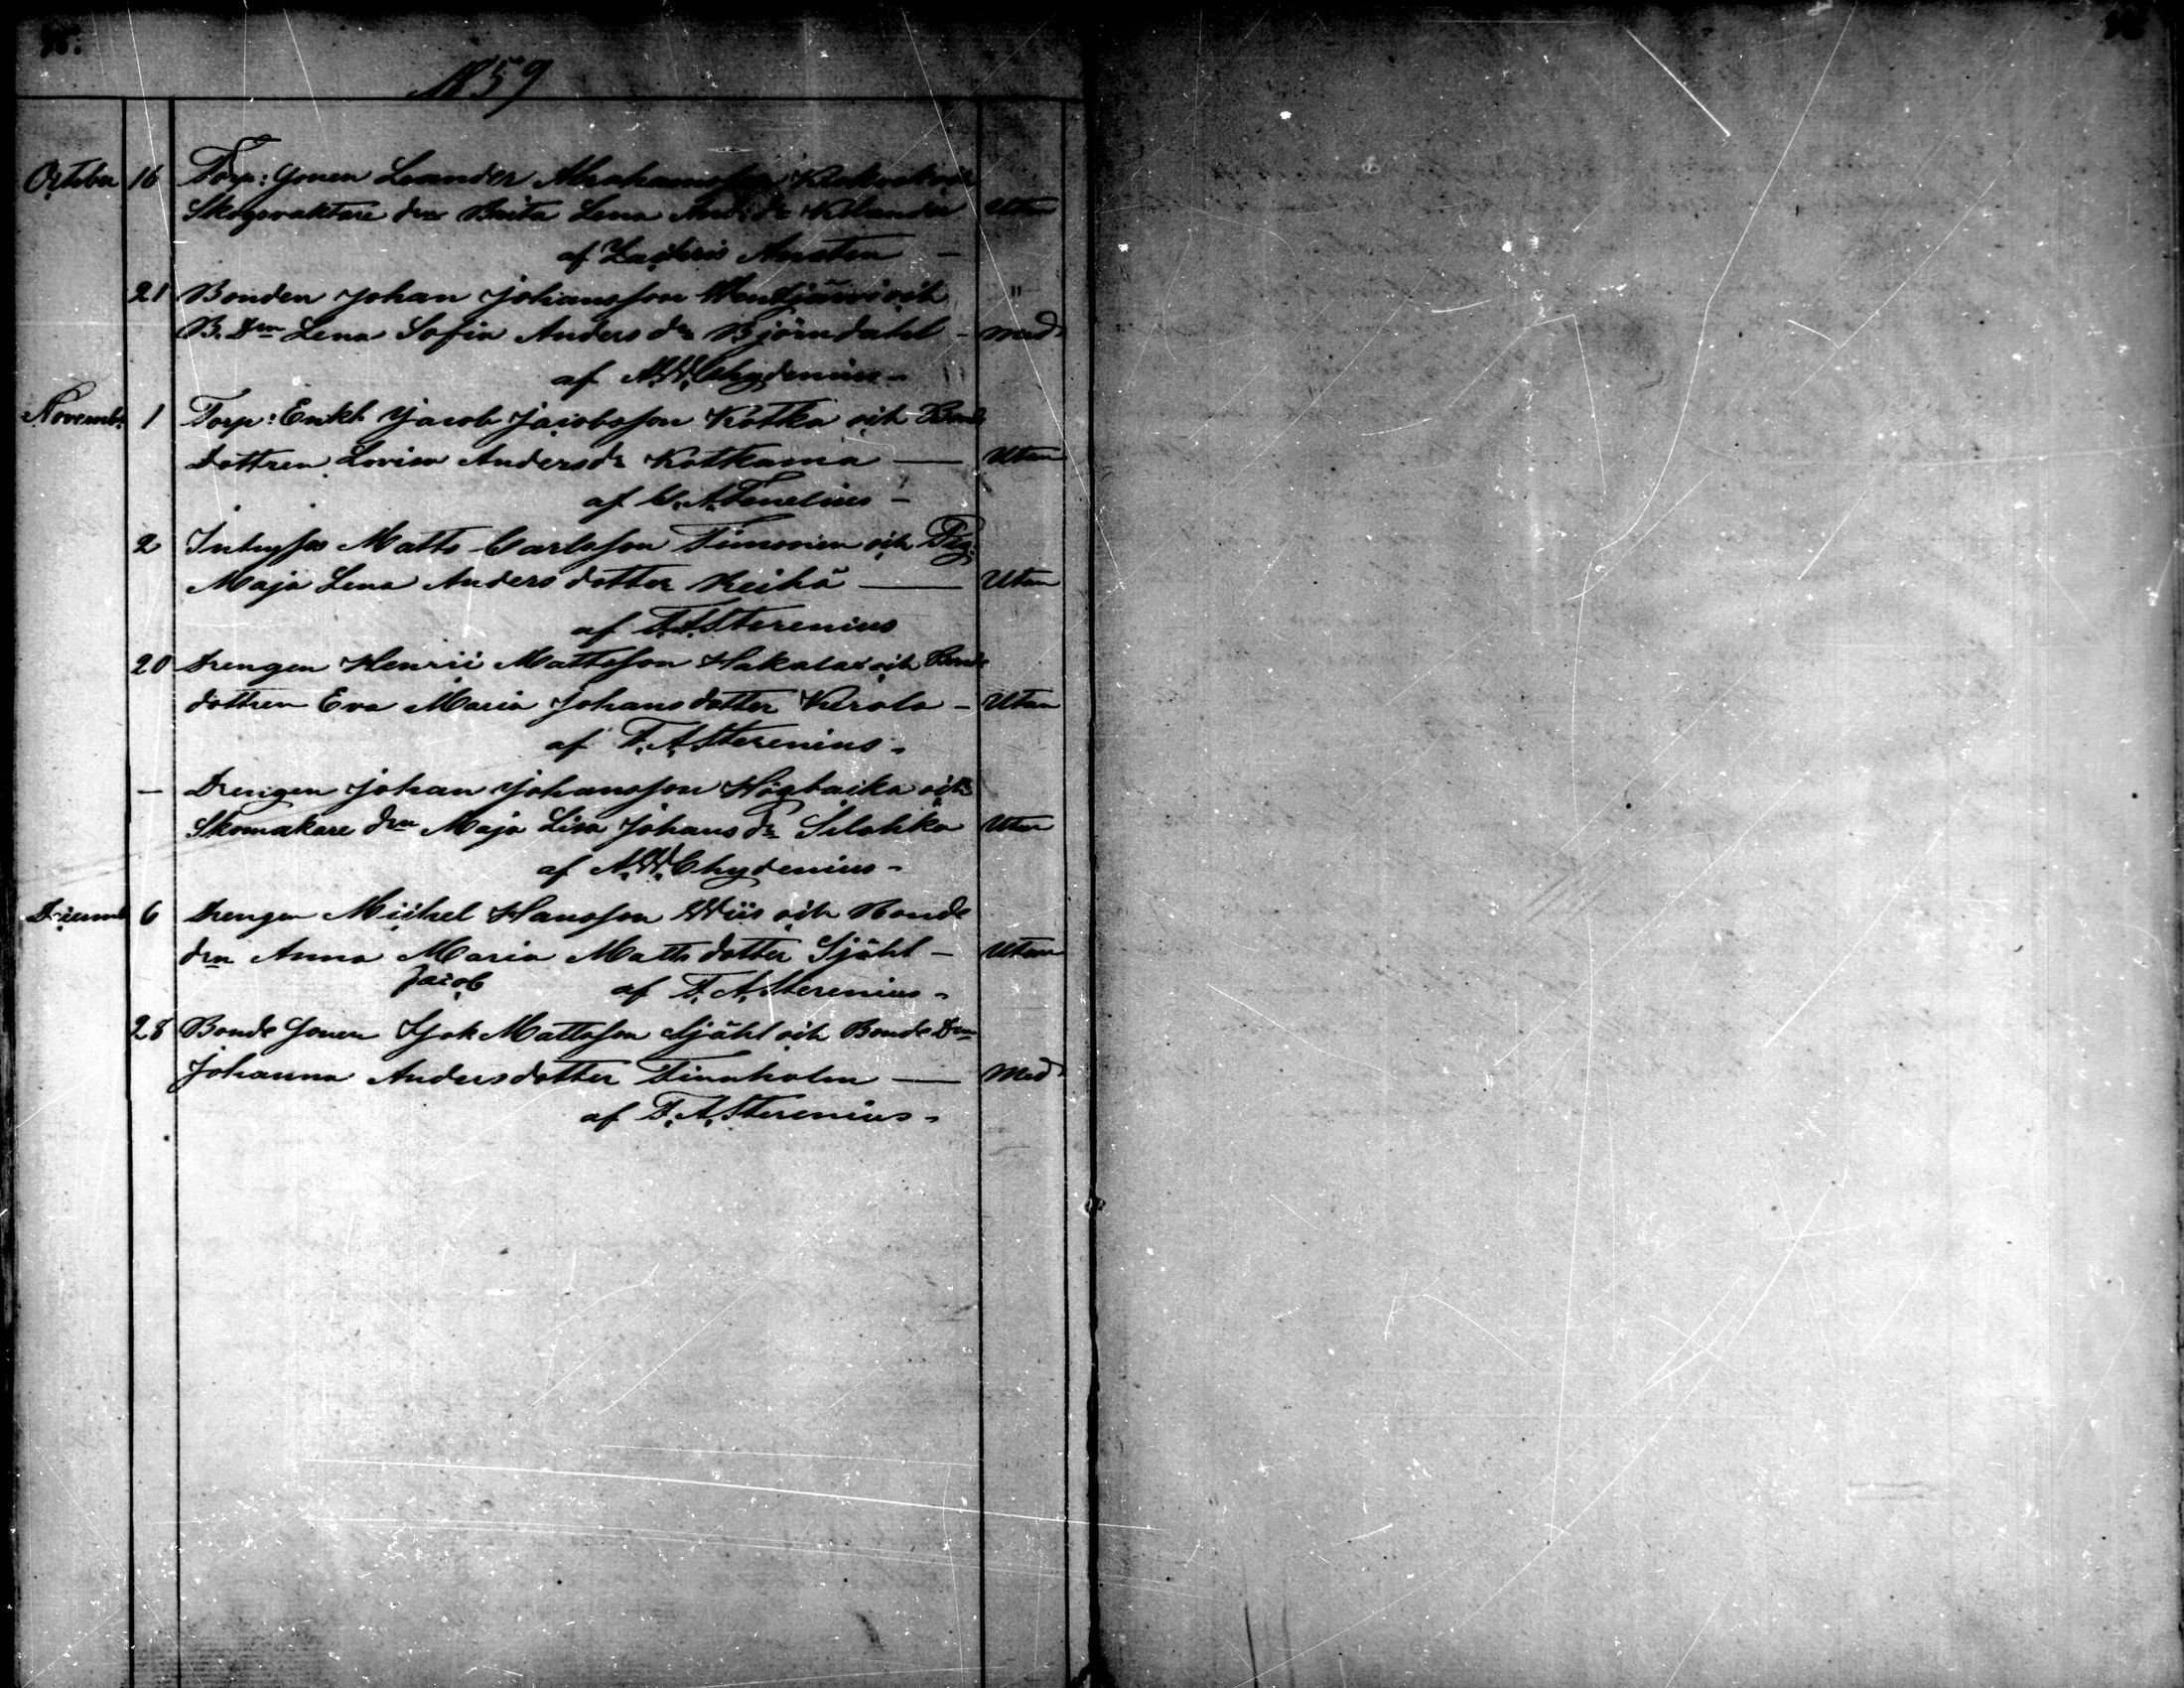 1859
October 16 Torp: Sonen Leander Abrahamsson och
Skogvaktare drn Brita Lena And: dr Kelander Utan
af Zachris Austen —
21 Bonden Johan Johansson och "
B. Drn Lena Sofia Anders dr Björndahl - med
af A.W. Chydenius -
Novemb: 1 Torp: Enkl. Jacob Jacobsson Kotka och Bonde
Dottren Lovisa Anders dr Kotkama — Utan
af C.A. Fenelius -
2 Inhyses Matts Carlsson Timonen och Pig:
Maja Lena Anders dotter Keihä — Utan
af F.A. Sterenius
20 Drengen Henric Mattsson Hakala och Bonde
dottren Eva Maria Johans dotter Kerola - Utan
af F.A. Sterenius -
— Drengen Johan Johansson Högbacka och
Skomakare drn Maja Lisa Johans dr Utan
af A.W. Chydenius -
Decemb 6 Drengen Michel Hansson Wiis och Bonde
drn Anna Maria Matts dotter Sjöhl - Utan
Jacob af F.A. Sterenius -
28 Bonde Sonen Mattsson Sjöhl och Bonde Drn
Johanna Andersdotter Finnholm — Med
af F.A. Sterenius -